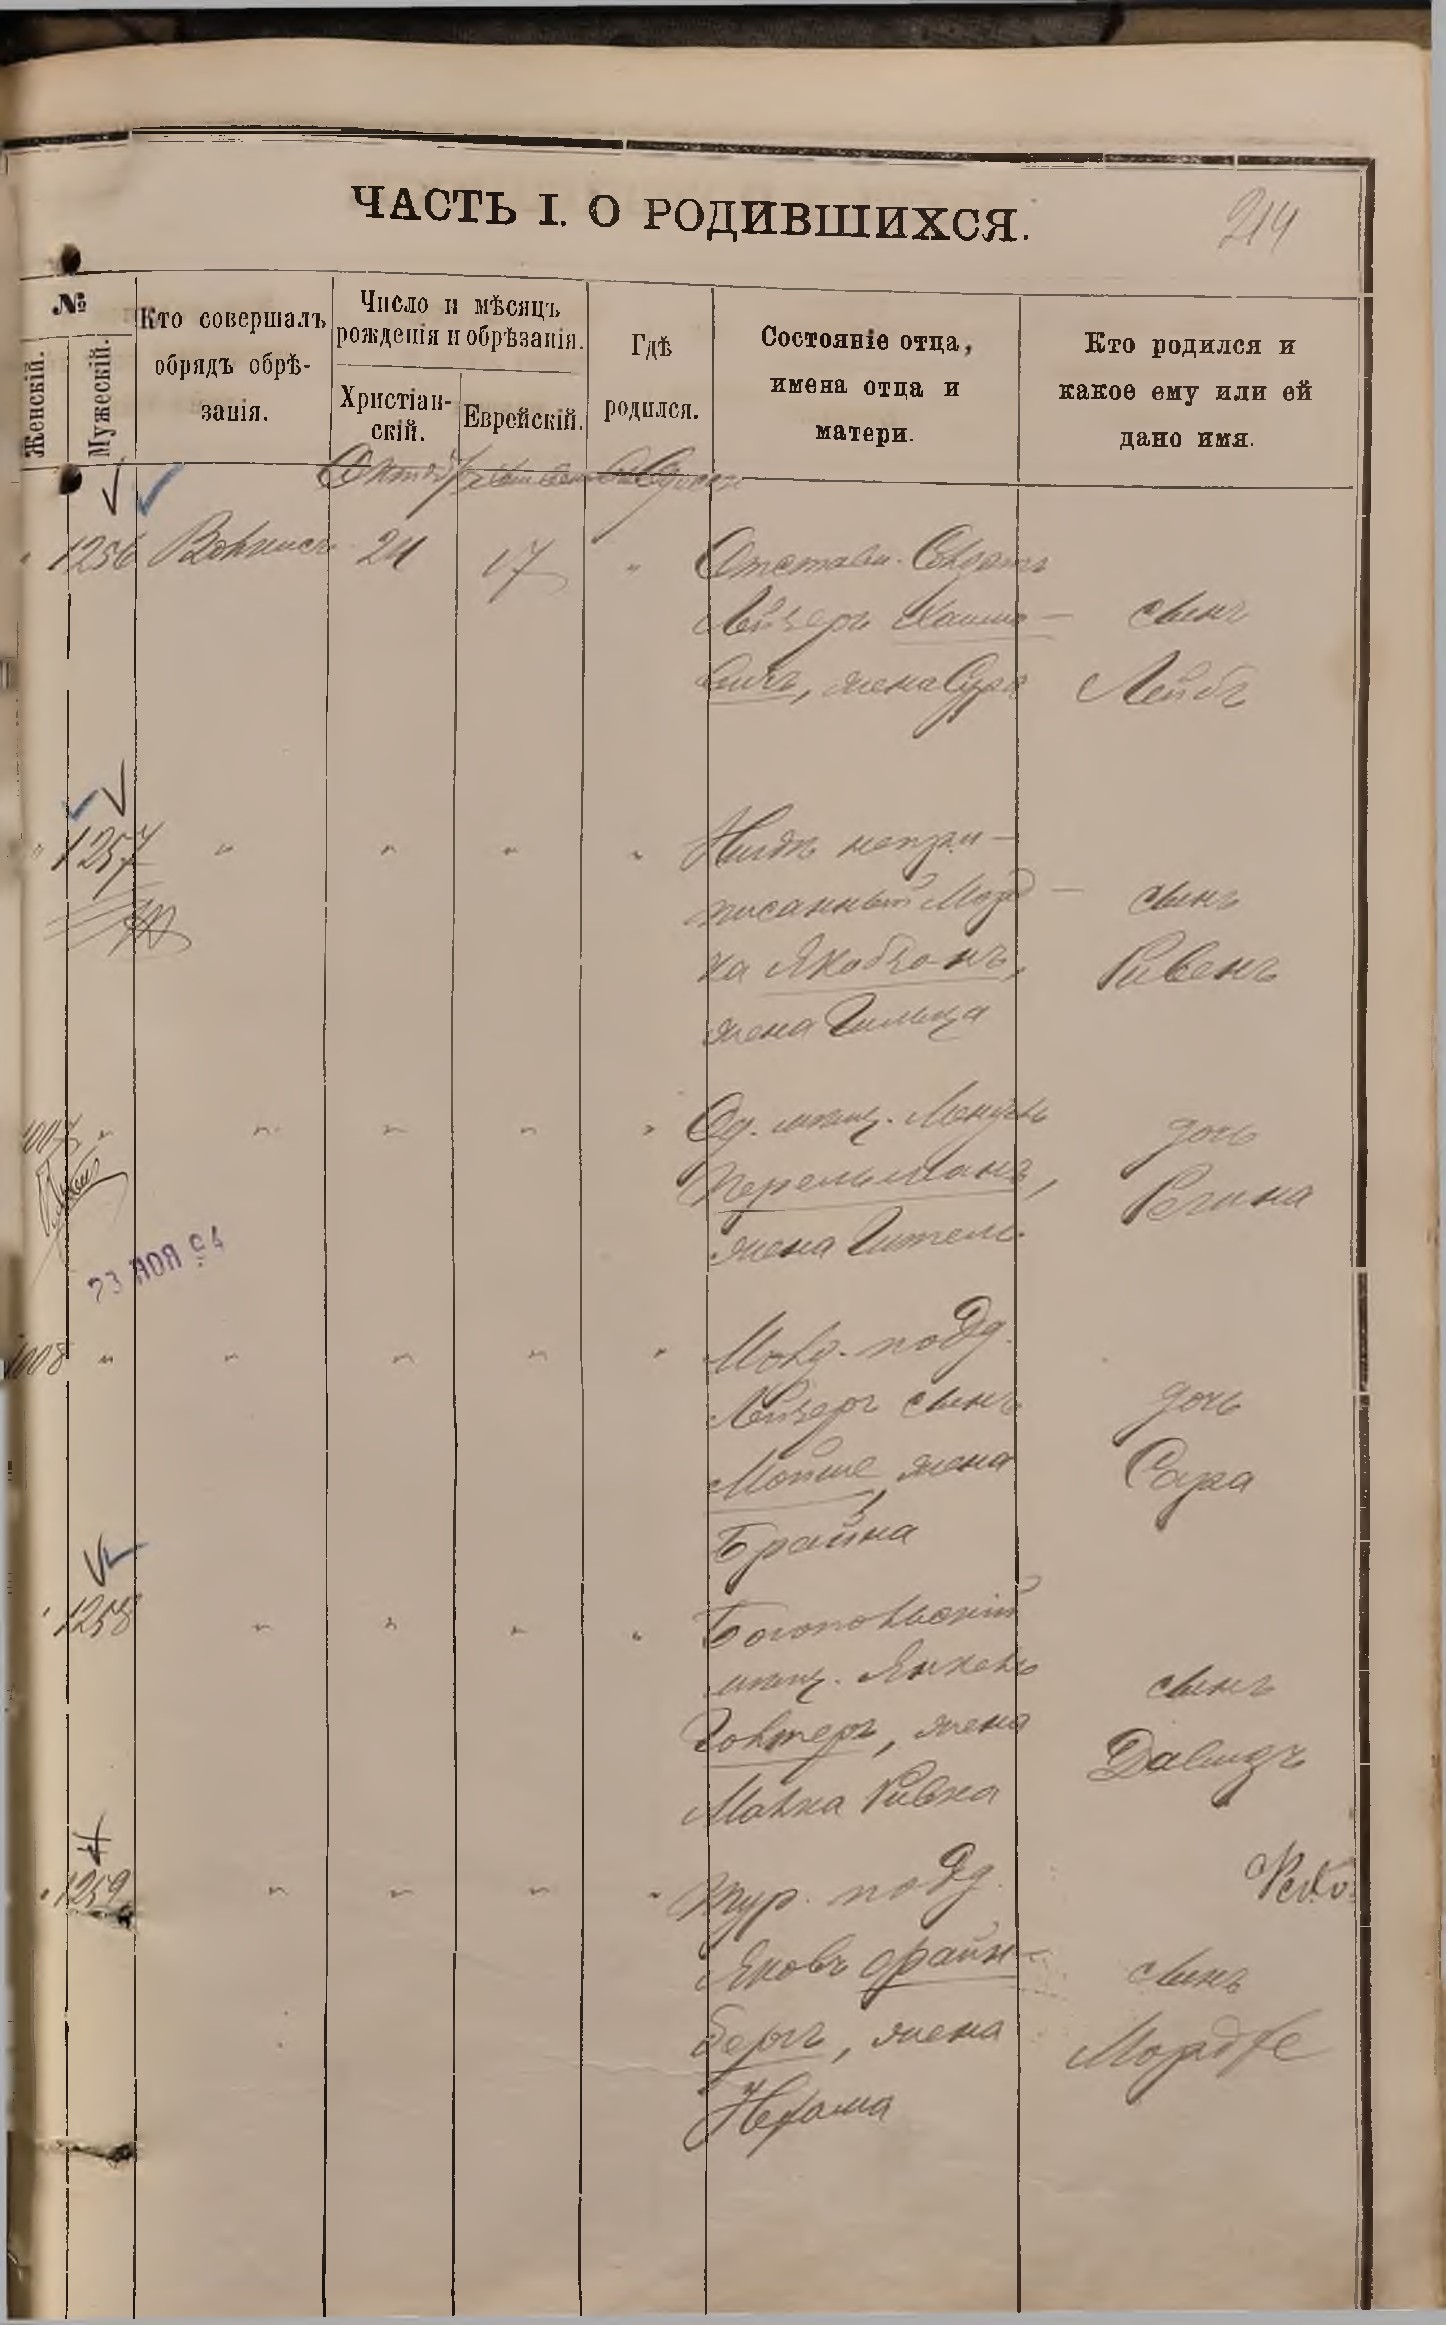 ЧАСТЬ I. О РОДИВШИХСЯ.
214
№
Женскій.
Мужескій.
Кто совершалъ
обрядъ обрѣ-
занія.
Число и мѣсяцъ
рожденія и обрѣзанія.
Христіан-
скій.
Еврейскій.
Гдѣ
родился.
Состояніе отца,
имена отца и
матери.
Кто родился и
какое ему или ей
дано имя.
" 1256 24 17 "
Отставн. Солдатъ
Лейзеръ Хаимо-
вичъ, жена Сура
сынъ
Лейбъ
" 1257 " " " "
Нигдѣ неприписанный
Мордка Якобзонъ,
жена Гильца
сынъ
Рувенъ
1007 " " " " "
Од. мѣщ. Мендель
Перельманъ,
жена Гитель.
дочь
Регина
23 НОЯ 94
1008 " " " " "
Молд. подд.
Лейзеръ сынъ
Мойше, жена
Брайна
дочь
Сура
" 1258 " " " "
Богопольскій
мѣщ. Янкель
Гольтеръ, жена
Малка Ривка
сынъ
Давидъ
" 1259 " " " "
Тур. подд.
Яковъ Файн-
бергъ, жена
Нехама
сынъ
Мордхе